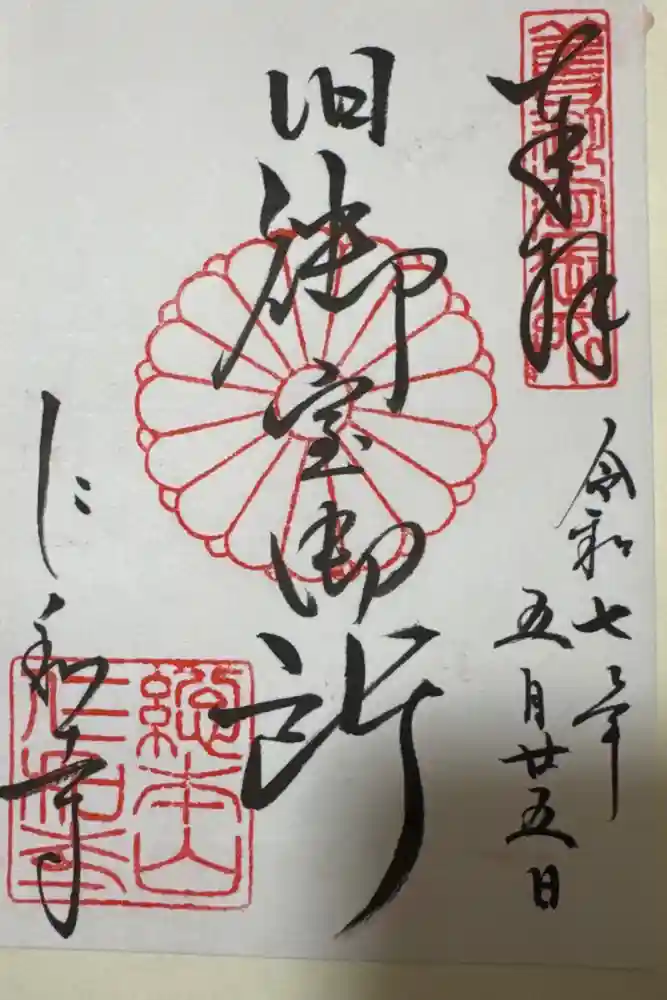 奉拝
令和七年
五月廿五日
旧御室御所
仁和寺
総本山
仁和寺